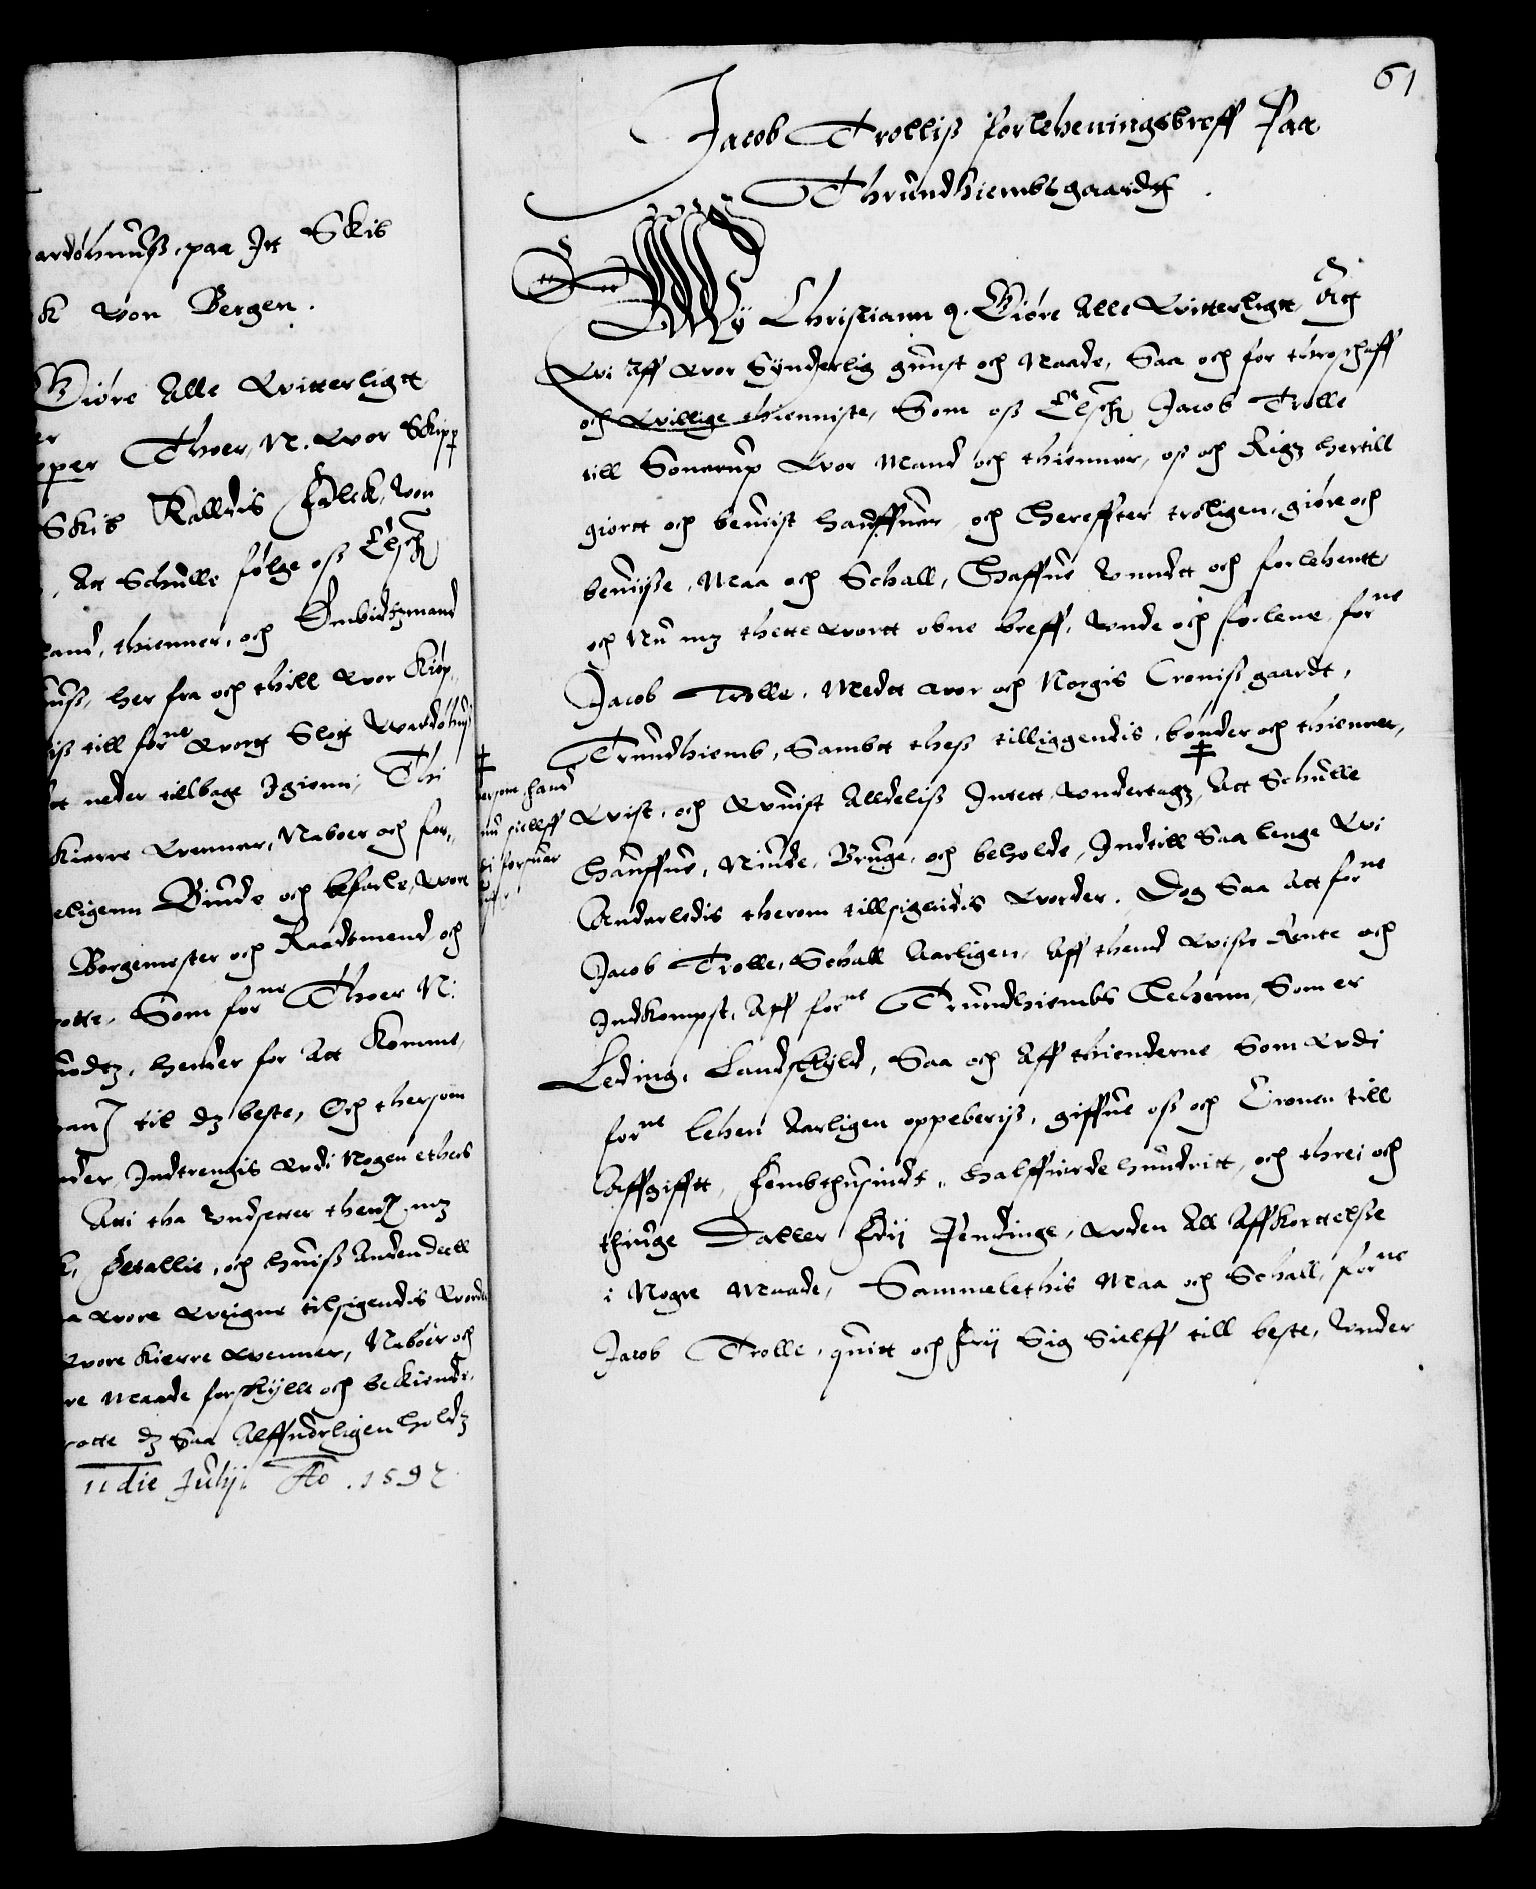 ardøhuuß, paa Itt Skib
k von Bergen.
Giøre Alle Witterligtt
er
pper Thoer, N. wor Skipp
Skib Kalldis Falck, von
, Att Schulle følge oß Elsch
and, thienner, och Ombidtzmand
uß, her fra och thill wor Kiøp
iß till forne worg Slog Wardøhuß
tt neder tilbage Igienn, Thi
Kierre wenner, Naboer och for-
eligenn Biude och befale, wore
Borgemester och Raadtmend och
otte, Som forne Thoer N:
udtz, hender for Att Komme,
til dz beste, Och thersom
nder, Indtrengis udi Nogen ethers
Atti tha undsetter mz
k, fetallie, och huiß Anden deell
a wore weigne tilsigendis worder
wore Kierre wenner, Naboer och
re Maade forskylle och bekiende,
otte dz Saa Alffuerligen holdz
11 die Julij. Ao. 1592
61
Jacob Trolliß forleheningsbreff Paa
Thrundhiembs gaardtt.
Wy Christiann 4. Giøre Alle Witterligtt Att
Wi Aff wor Synderlig gunst och Naade, Saa och for troschaff
och willige thienniste, Som oß Elsch Jacob Trolle
till Sonarup wor Mand och thienner, oß och Rigz hertill
giortt och beuist haffuer, och Hereffter troligen, giøre och
beuiiße, Maa och Schall, Haffue undt och forlehentt
och Nu mz thette wortt obne breff, unde och forlene forne
Jacob Trolle, Medtt wor och Norgis Croniß gaardt,
Trundhiemb, Sambt theß tilliggendis, bønder och thienner,
‡
‡ ersom hand
siellff
forsuer
Wist, och Wuist Alldeliß Intett undertagz, Att Schulle
Hauffue, Niude, Bruge, och beholde, Indtill Saa lenge Wi
Anderledis therom tillsigendis worder. Dog Saa Att forne
Jacob Trolle, Schall Aarligen, Aff thend Wiße Rente och
Indkompst, Aff forne Trundhiembs Lehenn, Som er
Leding, Landskyld, Saa och Aff thienderne Som udi
forne lehen Aarligen oppeberiß, giffue oß och Cronen till
Affgifftt, fembthusindt, halffierde hundritt, och threi och
thiuge Daller frij Pendinge, uden All Affkorttelße
i Nogre Maade, Sammelethis Maa och Schall, forne
Jacob Trolle, quitt och frij Sig Sielff till beste, under